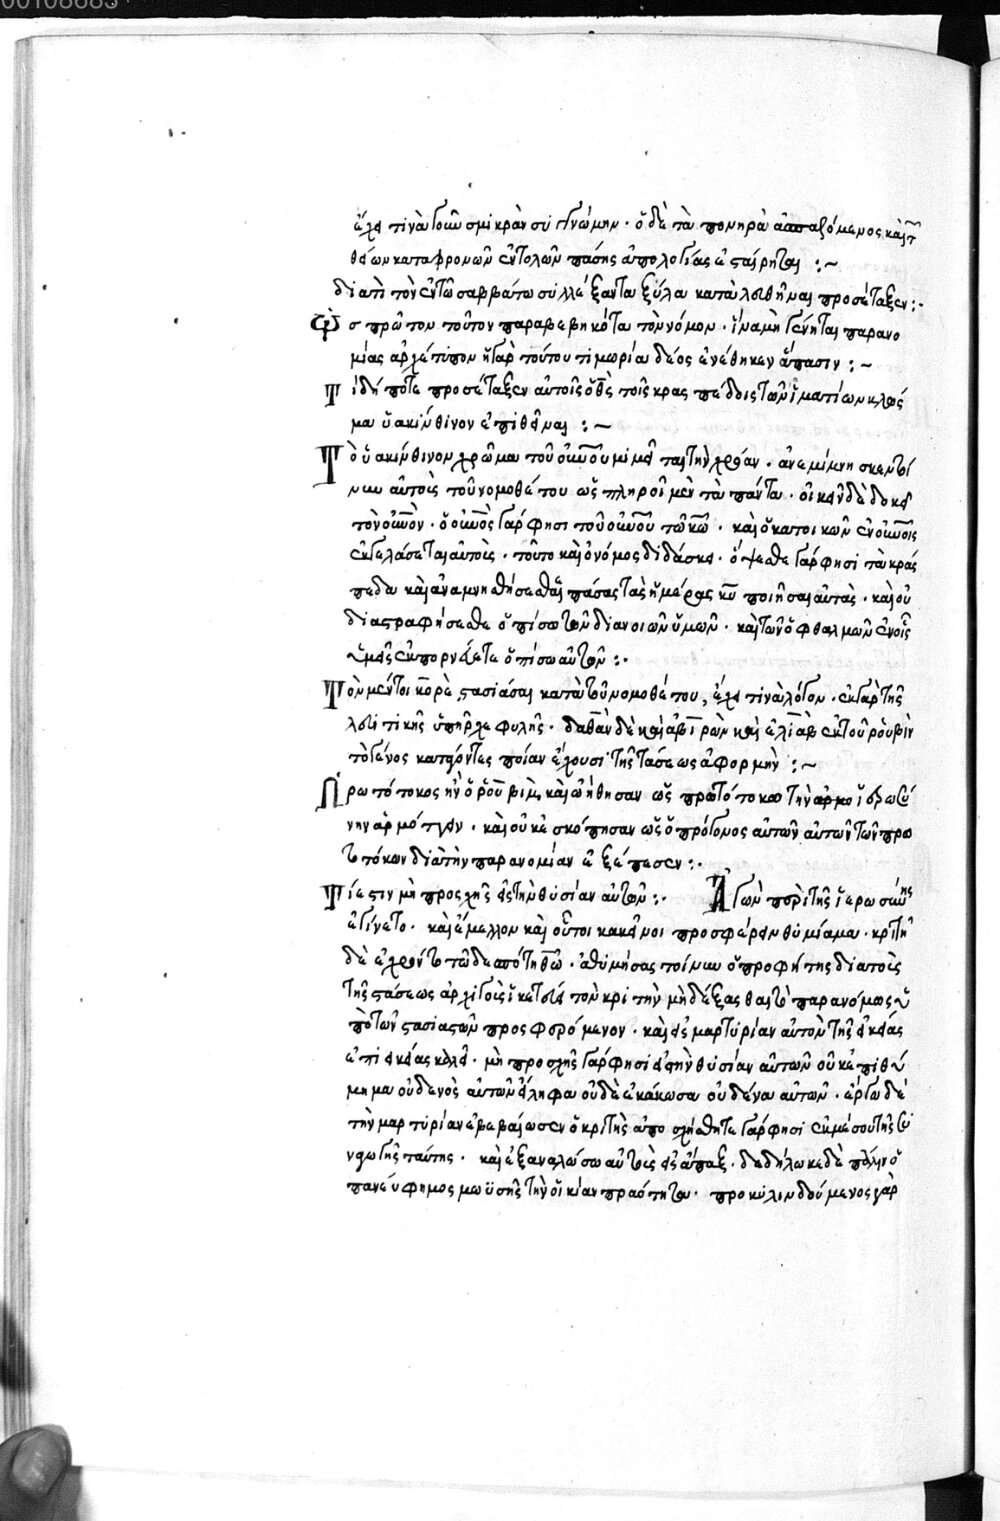 00108683
ἔχει τινὰ γοῦν σμικρὰν συγγνώμην · ὁ δὲ τὰ πονηρὰ ἀσπαζόμενος καὶ τ
θείων καταφρονῶν ἐντολῶν πάσης ἀπολογίας ἐστέρηται :~
διατὶ τὸν ἐν τῶ σαββάτω συλλέξαντα ξύλα καταλευθῆναι προσέταξεν :·
Ὡσ πρῶτον τοῦτον παραβεβηκότα τὸν νόμον · ἵνα μὴ γένηται παρανο
μίας ἀρχέτυπον ἡ γὰρ τούτου τιμωρία δέος ἐνέθηκεν ἅπασιν :~
Τί δή ποτε προσέταξεν αὐτοῖς ὁ θς τοῖς κρασπέδοις τῶν ἱματίων κλῶς
μα ὑακίνθινον ἐπιθεῖναι :~
Τὸ ὑακίνθινον χρῶμα τοῦ οὐνοῦ μιμεῖται τὴν χρόαν · ἀνεμίμνησκεν τοί
νυν αὐτοὺς τοῦ νομοθέτου ὡς πληροῖ μὲν τὰ πάντα · οἰκεῖν δὲ δοκεῖ
τὸν οὐνόν · ὁ οὐνὸς γάρ φησι τοῦ οὐνοῦ τῶ κω · καὶ ὁ κατοικῶν ἐν οὐνοῖς
ἐκγελάσεται αὐτοὺς · τοῦτο καὶ ὁ νόμος διδάσκει · ὄψεσθε γάρ φησι τὰ κράς
πεδα καὶ ἀναμνησθήσεσθαι πάσας τὰς ἡμέρας κυ ποιῆσαι αὐτὰς · καὶ οὐ
διαστραφήσεσθε ὀπίσω τῶν διανοιῶν ὑμῶν · καὶ τῶν ὀφθαλμῶν ἐν οἷς
ὑμεῖς ἐκπορνεύετε ὀπίσω αὐτῶν :·
Τὸν μέντοι κορὲ στασιάσαι κατὰ τοῦ νομοθέτου, ἔχει τινὰ λόγον · ἐκ γὰρ τῆς
λευιτικῆς ὑπῆρχε φυλῆς · δαθὰν δὲ καὶ ἀβιρὼν καὶ ἐλιὰβ ἐκ τοῦ ῥουβὶν
τὸ γένος κατάγοντες ποίαν ἔχουσι τῆς στάσεως ἀφορμὴν :~
Πρωτότοκος ἦν ὁ ῥουβὶμ, καὶ ὠήθησαν ὡς πρωτότοκοι τὴν ἀρχιερωσύ
νην ἁρμόττειν · καὶ οὐκ ἐσκόπησαν ὡς ὁ πρόγονος αὐτῶν αὐτῶν τῶν πρω
τοτόκων διὰ τὴν παρανομίαν ἐξέπεσεν :·
Τί ἐστιν μὴ προσχῆς εἰς τὴν θυσίαν αὐτῶν :· Ἀγὼν περὶ τῆς ἱερωσύνης
ἐγίνετο · καὶ ἔμελλον καὶ οὗτοι κακεῖνοι προσφέρειν θυμίαμα · κριτῆ
δὲ ἐχρῶντο τῶ δεσπότη θῶ · ἀθυμήσας τοίνυν ὁ προφήτης διὰ τοὺς
τῆς στάσεως ἀρχηγοὺς ἱκετεύει τὸν κριτὴν μὴ δέξασθαι τὸ παρανόμως ὑ
πὸ τῶν στασιαστῶν προσφερόμενον · καὶ εἰς μαρτυρίαν αὐτὸν τῆς ἐκείας
ἐπιεικείας καλεῖ · μὴ προσχῆς γάρ φησι εἰς τὴν θυσίαν αὐτῶν οὐκ ἐπιθύ
μημα οὐδενὸς αὐτῶν εἴληφα οὐδὲ ἐκάκωσα οὐδένα αὐτῶν · ἔργω δὲ
τὴν μαρτυρίαν ἐβεβαίωσεν ὁ κριτὴς ἀποσχίσθητε γάρ φησι ἐκ μέσου τῆς συ
ναγωγῆς ταύτης · καὶ ἐξαναλώσω αὐτοὺς εἰς ἅπαξ · δεδήλωκε δὲ πάλιν ὁ
πανεύφημος μωϋσῆς τὴν οἰκείαν πραότητα · προκυλινδούμενος γὰρ